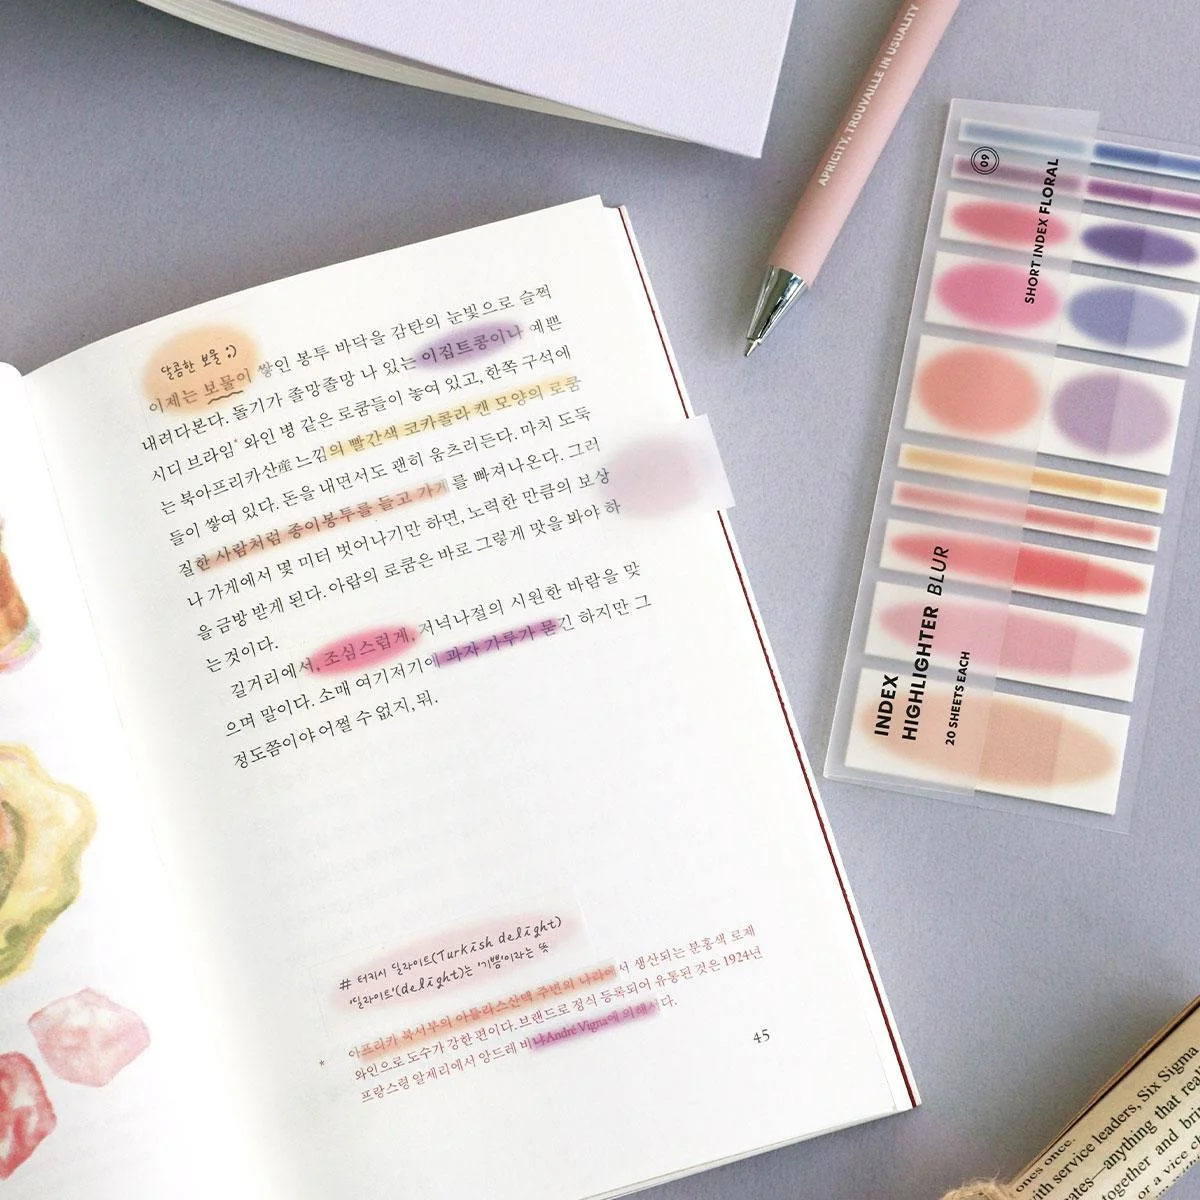 달콤한 보물 ;)
이제는 보물이 쌓인 봉투 바닥을 감탄의 눈빛으로 슬쩍
내려다본다. 돌기가 졸망졸망 나 있는 이집트콩이나 예쁜
시디 브라임* 와인 병 같은 로쿰들이 놓여 있고, 한쪽 구석에
는 북아프리카산産 느낌의 빨간색 코카콜라 캔 모양의 로쿰
들이 쌓여 있다. 돈을 내면서도 괜히 움츠러든다. 마치 도둑
질한 사람처럼 종이봉투를 들고 가게를 빠져나온다. 그러
나 가게에서 몇 미터 벗어나기만 하면, 노력한 만큼의 보상
을 금방 받게 된다. 아랍의 로쿰은 바로 그렇게 맛을 봐야 하
는 것이다.
길거리에서, 조심스럽게, 저녁나절의 시원한 바람을 맞
으며 말이다. 소매 여기저기에 과자 가루가 묻긴 하지만 그
정도쯤이야 어쩔 수 없지, 뭐.
# 터키시 딜라이트(Turkish delight)
'딜라이트'(delight)는 '기쁨'이라는 뜻
* 아프리카 북서부의 아틀라스산맥 주변의 나라에서 생산되는 분홍색 로제
와인으로 도수가 강한 편이다. 브랜드로 정식 등록되어 유통된 것은 1924년
프랑스령 알제리에서 앙드레 비냐André Vigna에 의해서다.
45
APRICITY, TROUVAILLE IN USUALITY
09
SHORT INDEX FLORAL
INDEX
HIGHLIGHTER BLUR
20 SHEETS EACH
ones once.
with service leaders, Six Sigma
—anything that real
together and bri
or a vice c